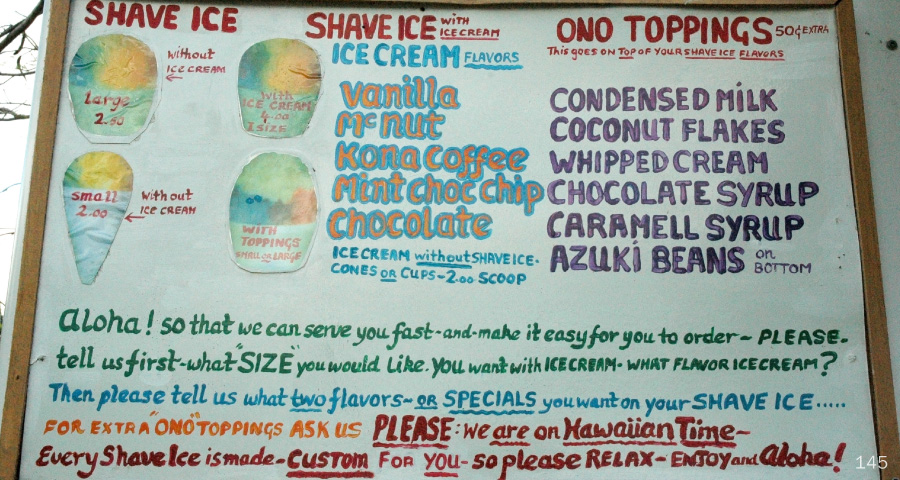 SHAVE ICE
without
ICE CREAM
large
2.50
small
2.00
without
ICE CREAM
SHAVE ICE WITH ICE CREAM
with
ICE CREAM
4.00
1 SIZE
WITH
TOPPINGS
SMALL OR LARGE
ICE CREAM FLAVORS
Vanilla
Mc nut
Kona Coffee
Mint choc chip
Chocolate
ICE CREAM without SHAVE ICE-
CONES OR CUPS~2.00 SCOOP
ONO TOPPINGS 50¢ EXTRA
This goes on TOP OF YOUR SHAVE ICE FLAVORS
CONDENSED MILK
COCONUT FLAKES
WHIPPED CREAM
CHOCOLATE SYRUP
CARAMELL SYRUP
AZUKI BEANS on BOTTOM
Aloha! so that we can serve you fast-and-make it easy for you to order~ PLEASE-
tell us first-what "SIZE" you would like. you want with ICE CREAM- WHAT FLAVOR ICE CREAM?
Then please tell us what two flavors~ OR SPECIALS you want on your SHAVE ICE.....
FOR EXTRA "ONO" TOPPINGS ASK US PLEASE: we are on Hawaiian Time~
Every Shave Ice is made-CUSTOM FOR YOU- so please RELAX- ENJOY and Aloha!
145